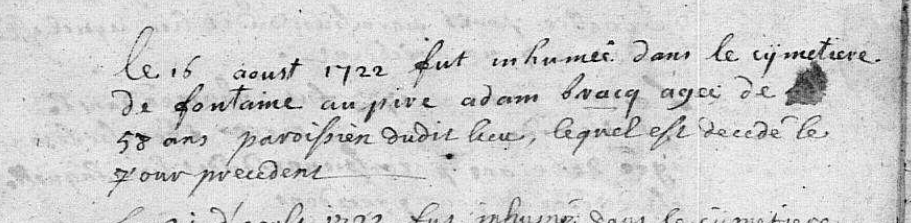 le 16 aoust 1722 fut inhumeé dans le cÿmetiere
de fontaine au pire adam bracq ageé de
58 ans paroissien dudit lieu, lequel est decedé le
jour precedent
1722 fut inhumé dans le cÿmetiere